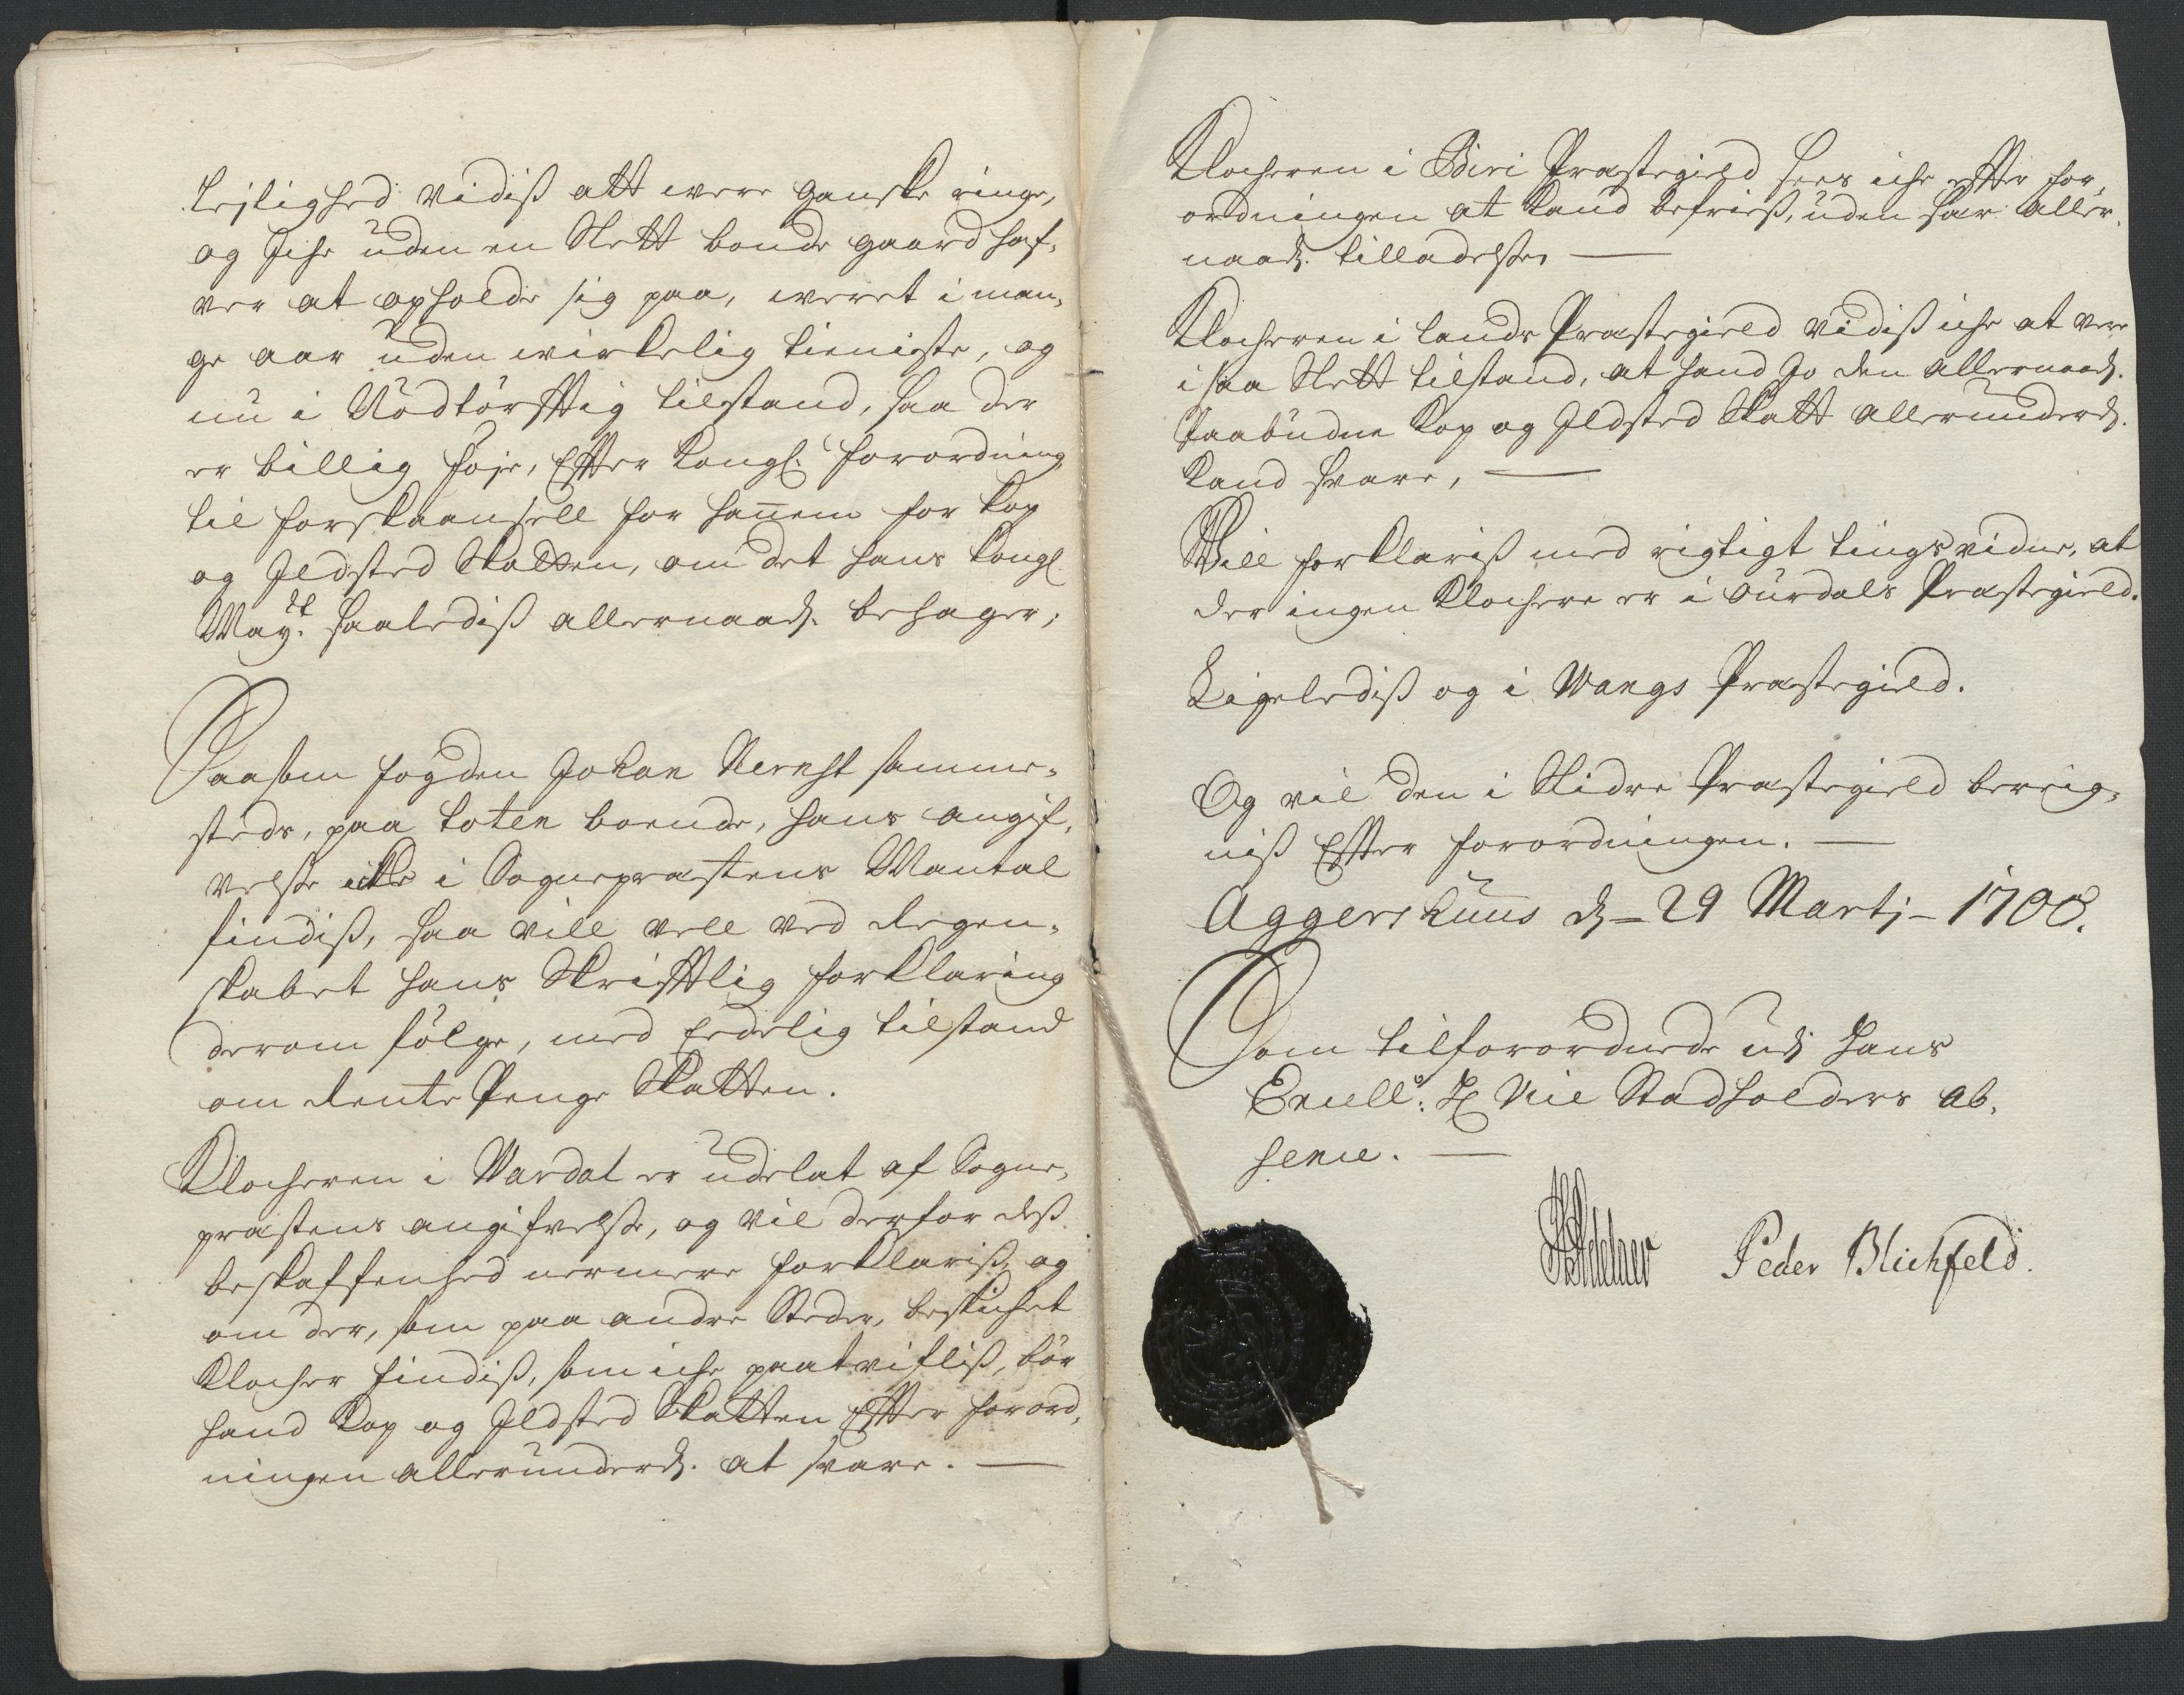 Lejlighed vidis att were ganske ringe,
og Iche uden en Slett bonde gaard haf,,
ver at opholde sig paa, weret i man,,
ge aar uden wirkelig tieniste, og
nu i Nödtörfftig tilstand, saa der
er billig föje, Effter Kongl: forordning
til forskaansell for hannem for Kop
og Ildsted Skatten, om det hans Kongl
May:tt saaledis allernaad: behager;
Saasom fogden Johan Nernst samme,,
steds, paa Toten boende, hans angif,,
velse icke i Sognepræstens Mantal
findis, saa vill vell ved Regen,,
skabet hans Skrifftlig forklaring
derom fölge, med Eedelig tilstand
om Rente Penge Skatten.
Klocheren i Wardal er udelat af Sogne,,
præstens angifvelse, og vil derfor dess
beskaffenhed nermere forklaris, og
om der, som paa andre Steder, beskichet
Klocher findis, som iche paatviflis, bör
hand Kop og Ildsted Skatten Effter forord,,
ningen allerunderd: at svare. —
Klocheren i Biri Præstegield sees iche effter for,,
ordningen at kand befries, uden sær aller,,
naad: tilladelse. —
Klocheren i Lands Præstegield vidis iche at vere
i saa Slett tilstand, at hand jo den allernaad:
Paabudne Kop og Ildsted Skatt allerunderd:
kand svare, —
Will forklaris med rigtigt tingsvidne, at
der ingen Klochere er i Ourdals Præstegield.
Ligeledis og i Wangs Præstegield.
Og vil den i Slidre Præstegield bereig,,
nis Effter forordningen. —
Aggershuus d: 29 Martj – 1708.
Som tilforordnede udj hans
Excell: H: Vice Stadholders ab,,
sence. —
Peder Blichfeld.